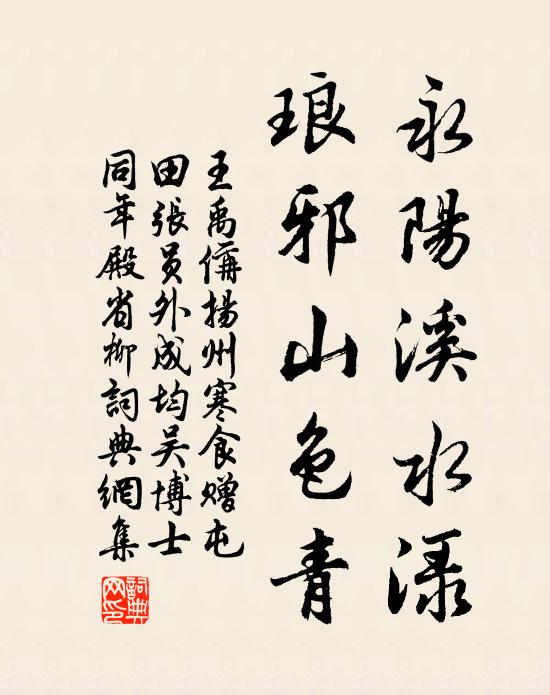 永陽溪水淥
琅邪山色青
王禹偁揚州寒食贈屯
田張員外成均吳博士
同年殿省柳詞典網集
詞典網印